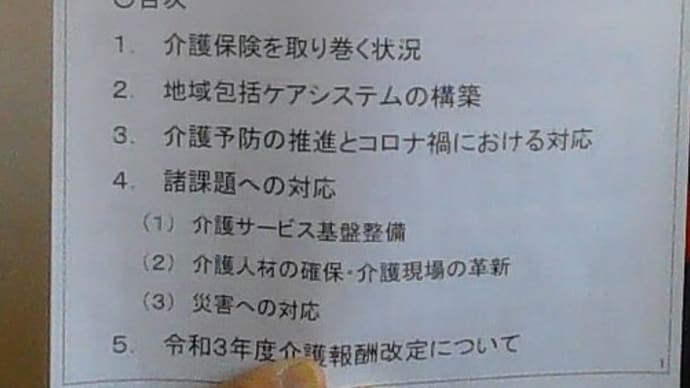 ○目次
1. 介護保険を取り巻く状況
2. 地域包括ケアシステムの構築
3. 介護予防の推進とコロナ禍における対応
4. 諸課題への対応
(1) 介護サービス基盤整備
(2) 介護人材の確保・介護現場の革新
(3) 災害への対応
5. 令和3年度介護報酬改定について
1